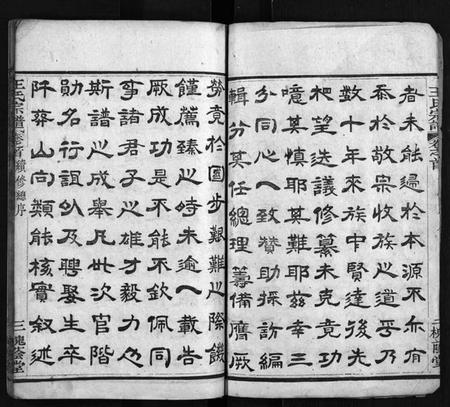 者未能過於本源不亦有
忝於敬宗收族之道乎乃
数十年來族中賢達後先
杷望迭議修纂未克竟功
噫其慎耶其難耶兹幸三
分同心一致贊助採訪編
輯分其任總理籌備膺厥
王氏宗譜 卷首
二
勞竟於國步艱難之際饑
饉薦臻之時未逾一載告
厥成功是不能不欽佩同
事諸君子之雄才毅力也
斯譜之成舉凡世次官階
勛名行誼以及聘娶生卒
阡葬山向類能核實叙述
王氏宗譜 卷首 續修總序
三 槐蔭堂